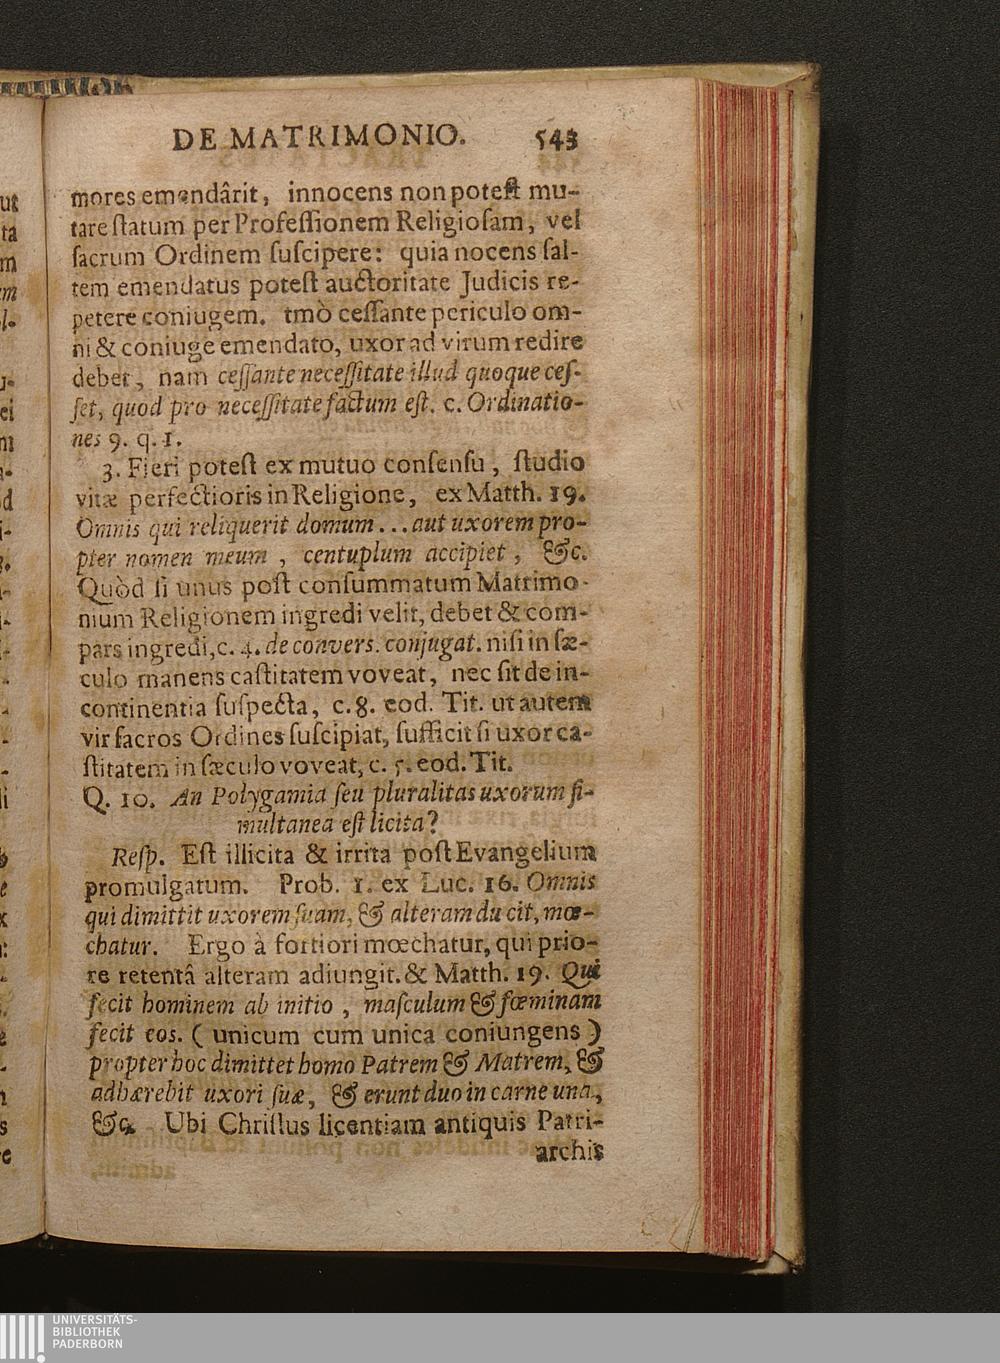 DE MATRIMONIO. 543
mores emendârit, innocens non potest mu-
tare ſtatum per Profeſſionem Religioſam, vel
ſacrum Ordinem ſuſcipere: quia nocens ſal-
tem emendatus poteſt auctoritate Judicis re-
petere coniugem. imò ceſſante periculo om-
ni & coniuge emendato, uxor ad virum redire
debet, nam ceſſante neceſſitate illud quoque ceſ-
ſet, quod pro neceſſitate factum eſt. c. Ordinatio-
nes 9. q. 1.
3. Fieri poteſt ex mutuo conſenſu, ſtudio
vitæ perfectioris in Religione, ex Matth. 19.
Omnis qui reliquerit domum... aut uxorem pro-
pter nomen meum, centuplum accipiet, &c.
Quòd ſi unus poſt conſummatum Matrimo-
nium Religionem ingredi velit, debet & com-
pars ingredi, c. 4. de convers. conjugat. niſi in ſæ-
culo manens caſtitatem voveat, nec ſit de in-
continentia ſuſpecta, c. 8. eod. Tit. ut autem
vir ſacros Ordines ſuſcipiat, ſufficit ſi uxor ca-
ſtitatem in ſæculo voveat, c. 5. eod. Tit.
Q. 10. An Polygamia ſeu pluralitas uxorum ſi-
multanea eſt licita?
Reſp. Eſt illicita & irrita poſt Evangelium
promulgatum. Prob. 1. ex Luc. 16. Omnis
qui dimittit uxorem ſuam, & alteram ducit, mœ-
chatur. Ergo à fortiori mœchatur, qui prio-
re retentâ alteram adiungit. & Matth. 19. Qui
fecit hominem ab initio, maſculum & fœminam
fecit eos. (unicum cum unica coniungens)
propter hoc dimittet homo Patrem & Matrem, &
adhærebit uxori ſuæ, & erunt duo in carne una,
&c. Ubi Chriſtus licentiam antiquis Patri-
archis
UNIVERSITÄTS-
BIBLIOTHEK
PADERBORN